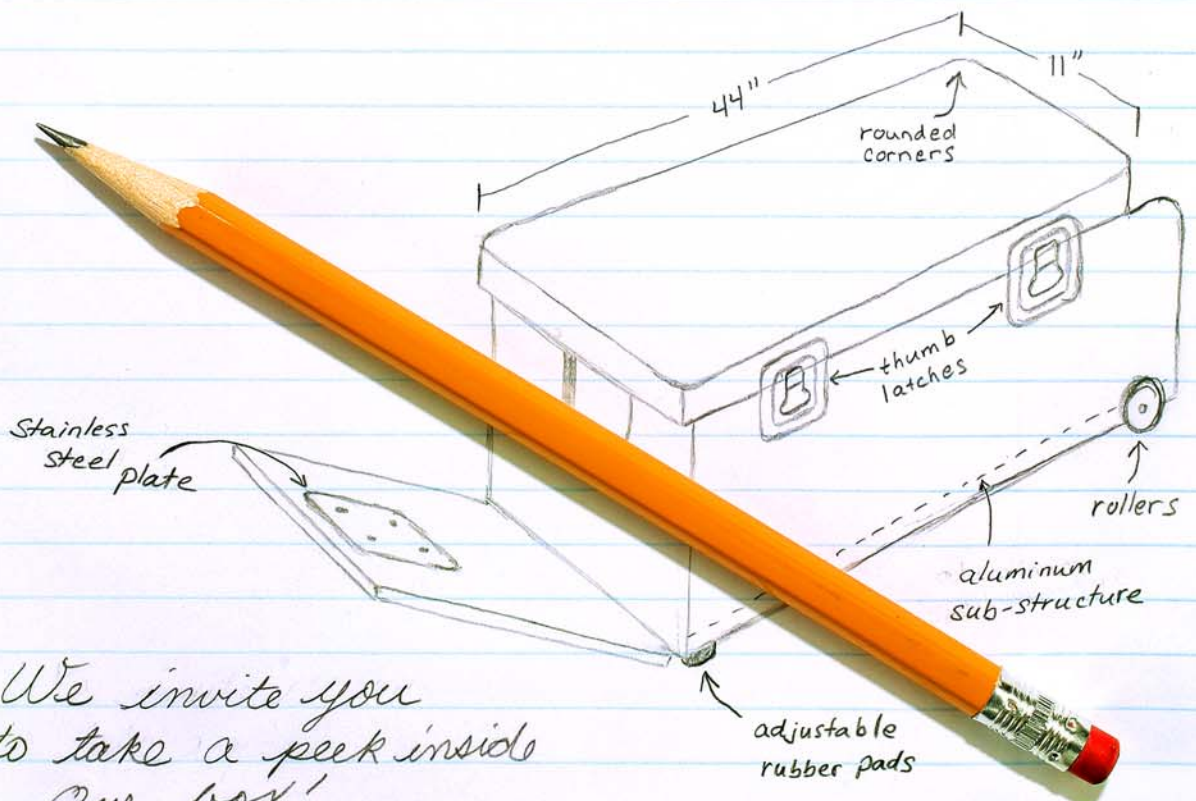 44"
11"
rounded
corners
thumb
latches
Stainless
steel
plate
rollers
aluminum
sub-structure
adjustable
rubber pads
We invite you
to take a peek inside
Our box!